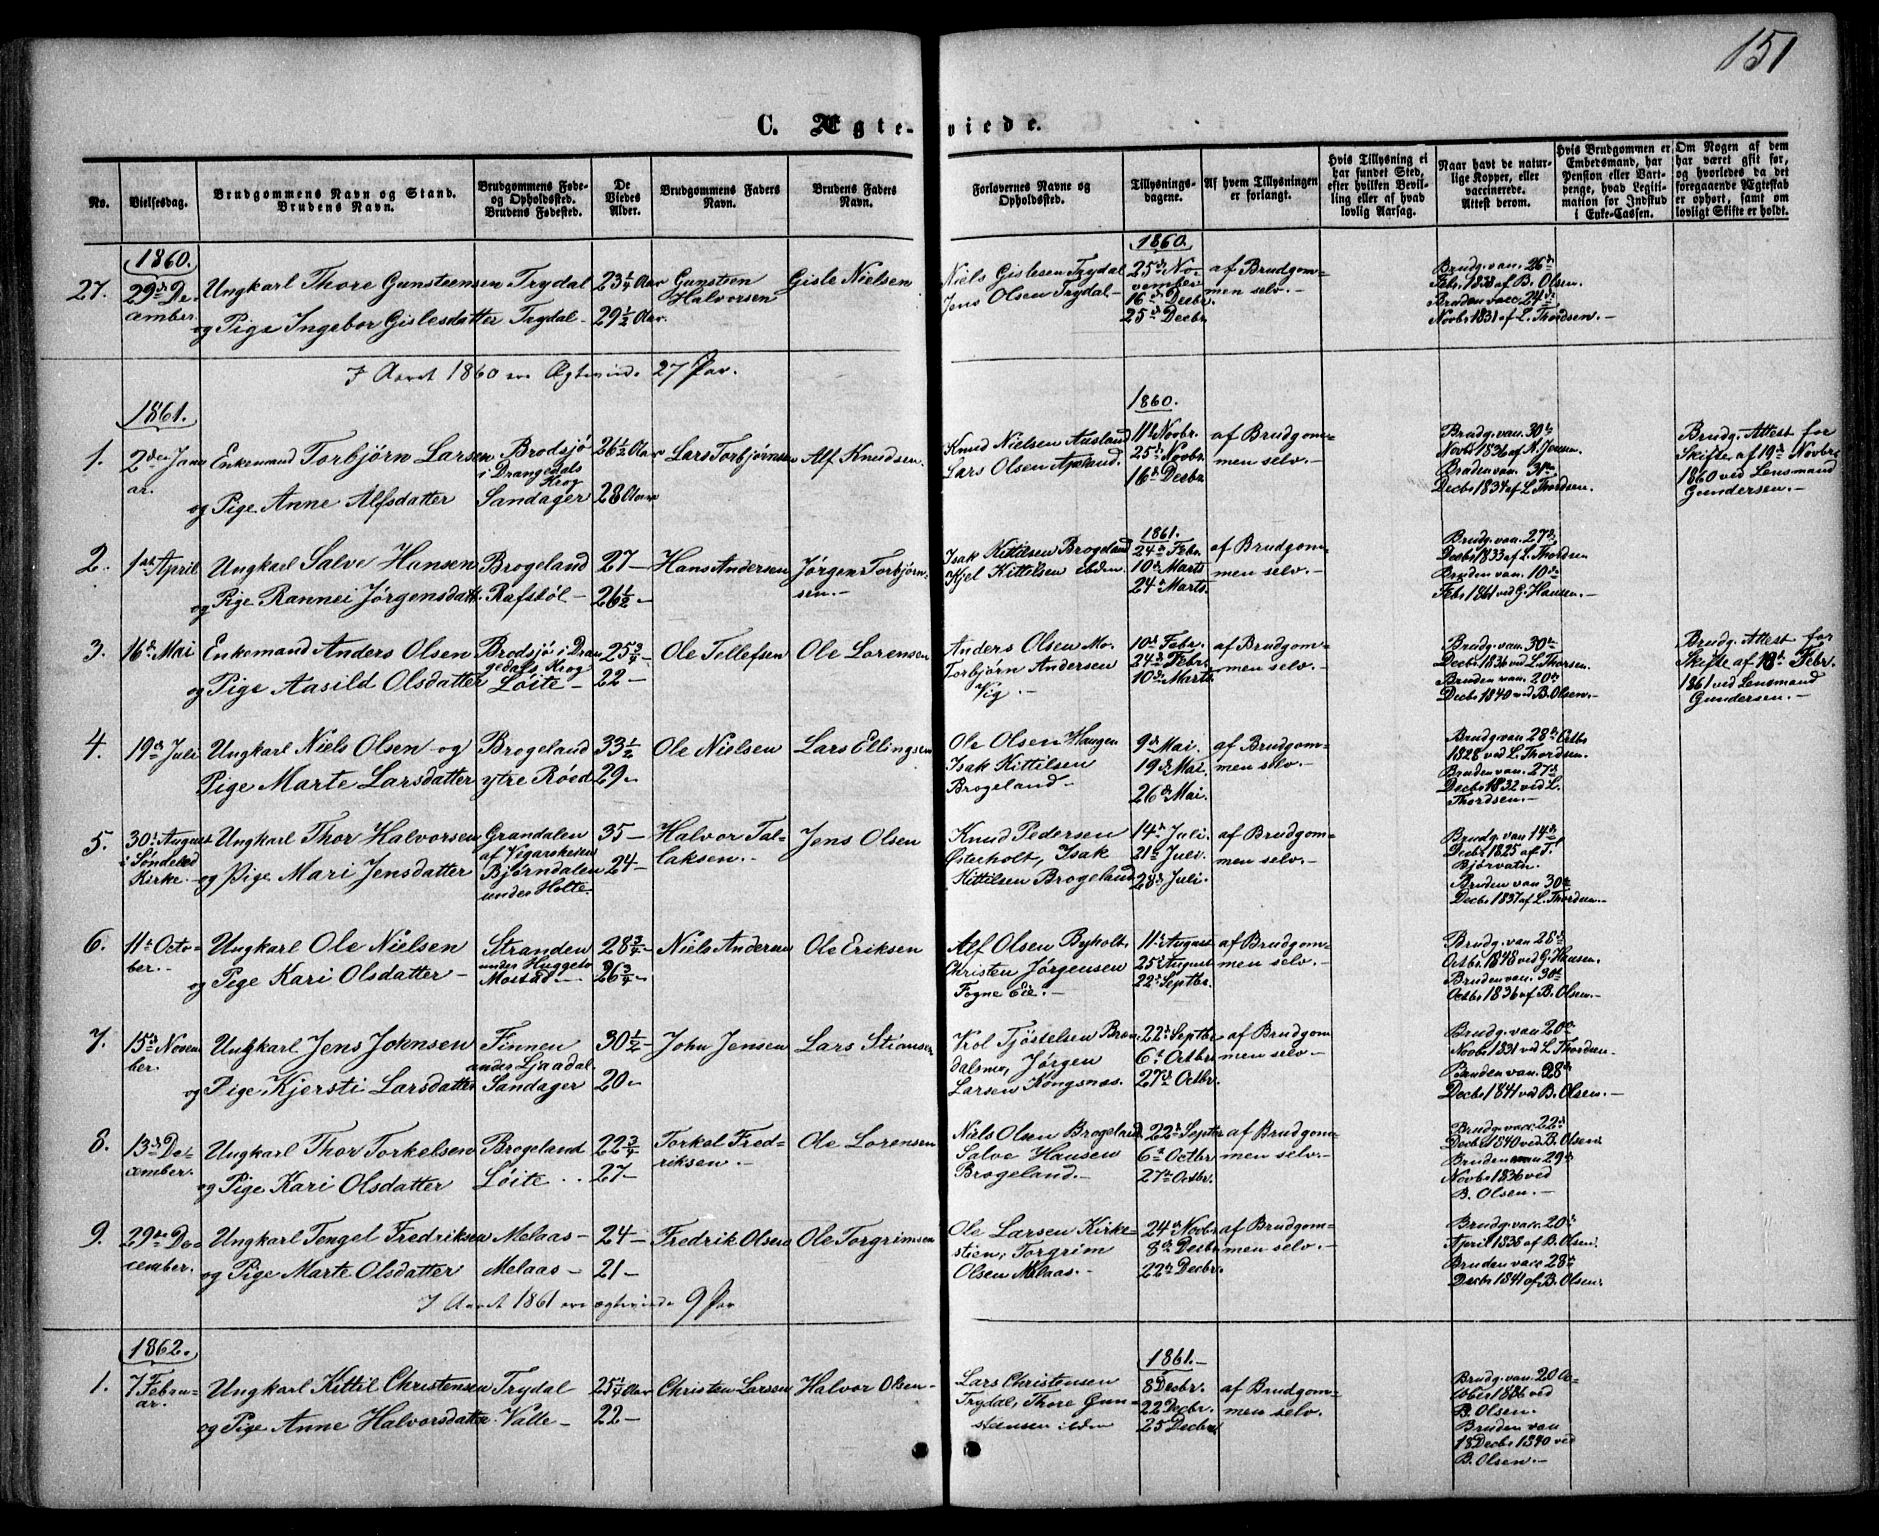 151
C. Ægte-viede.
No.
Vielsesdag.
Brudgommens Navn og Stand.
Brudens Navn.
Brudgommens Føde-
og Opholdssted.
Brudens Fødested.
De
Viedes
Alder.
Brudgommens Faders
Navn.
Brudens Faders
Navn.
Forlovernes Navne og
Opholdssted.
Tillysnings-
dagene.
Af hvem Tillysningen
er forlangt.
Hvis Tillysning ei
har fundet Sted,
efter hvilken Bevil-
ling eller af hvad
lovlig Aarsag.
Naar havt de natur-
lige Kopper, eller
vaccinerede.
Attest derom.
Hvis Brudgommen er
Embedsmand, har
Pension eller Vart-
penge, hvad Legiti-
mation for Indskud
i Enke-Cassen.
Om Nogen af dem
har været gift før,
og hvorledes da det
foregaaende Ægteskab
er ophørt, samt om
lovligt Skifte er holdt.
1860.
27.
29de De-
cember.
Ungkarl Thore Gunsteensen
og Pige Ingebor Gislesdatter
Trydal
Trydal -
23 1/4 Aar
29 1/2 Aar.
Gunsteen
Halvorsen
Gisle Nielsen
Niels Gislesen Trydal
Jens Olsen Trydal -
1860.
25de No-
vember
16de Decbr.
25de Decbr.
af Brudgom-
men selv. -
Brudg. van. 26de
Feb. 1838 af B. Olsen.
Bruden vacc. 24de
Novb. 1831 af L. Thordsen. -
I Aaret 1860 ere Ægteviede 27 Par.
1861.
1.
2den Janu
ar.
Enkemand Torbjørn Larsen
og Pige Anne Alfsdatter
Brodsjø
i Drangedals
Sandager
26 1/2 Aar
28 Aar
Lars Torbjørnsen
Alf Knudsen.
Knud Nielsen Ausland
Lars Olsen Apeland. -
1860.
11te Novbr.
25de Novbr.
16de Decbr.
af Brudgom-
men selv. -
Brudg. van. 30te
Novb. 1836 af N. Jensen.
Bruden van. 31te
Decb. 1834 af L. Thordsen.
Brudg. Attest for
Skifte af 19de Novbr.
1860 ved Lensmand
Gundersen. -
2.
1ste April
Ungkarl Salve Hansen
og Pige Rannei Jørgensdatt.
Brogeland
Rafstøl -
27 -
26 1/2 -
Hans Andersen
Jørgen Torbjørn-
sen. -
Isak Kittilsen Brogeland
Kjel Kittilsen ibden.
1861.
24de Febr.
10de Marts
24de Marts.
af Brudgom-
men selv. -
Brudg. van. 27de
Decb. 1833 af L. Thordsen
Bruden van. 10de
Feb. 1861 ved G. Hansen. -
3.
16de Mai
Enkemand Anders Olsen
og Pige Aasild Olsdatter
Brodsjø i Dran
gedals
Løite -
25 3/4 -
22 -
Ole Tellefsen
Ole Lorensen
Anders Olsen Mo.
Torbjørn Andersen
Vig. -
10de Febr.
24de Febr.
10de Marts.
af Brudgom-
men selv. -
Brudg. van. 30te
Decb. 1836 ved L. Thorsen.
Bruden van. 20de
Decb. 1840 ved B. Olsen. -
Brudg. Attest for
Skifte af 18de Febr.
1861 ved Lensmand
Gundersen. -
4.
19de Juli
Ungkarl Niels Olsen og
Pige Marte Larsdatter
Brogeland
ytre Røed
33 1/2
29 -
Ole Nielsen
Lars Ellingsen
Ole Olsen Haugen
Isak Kittilsen
Brogeland. -
9de Mai.
19de Mai.
26de Mai.
af Brudgom-
men selv. -
Brudg. van. 28de Octb.
1828 ved L. Thordsen.
Bruden van. 27de
Decb. 1832 ved L.
Thordsen. -
5.
30te August
i Søndeled
Kirke. -
Ungkarl Thor Halvorsen
og Pige Mari Jensdatter
Grandalen
af Vegarsheien
Bjørndalen
under Holte -
35 -
24 -
Halvor Tal-
laksen. -
Jens Olsen
Knud Pedersen
Østerholt, Isak
Kittilsen Brogeland
14de Juli.
21de Juli.
28de Juli.
af Brudgom-
men selv. -
Brudg. van. 14de
Decb. 1825 af T.
Bjørvatn.
Bruden van. 30te
Decb. 1837 af L. Thordsen. -
6.
11te Octo-
ber. -
Ungkarl Ole Nielsen
og Pige Kari Olsdatter -
Stranden
under
28 3/4 -
26 3/4 -
Niels Andersen
Ole Eriksen
Alf Olsen Byholt.
Christen Jørgensen
Fogne Eie. -
11te August
25de August
22de Septbr.
af Brudgom-
men selv. -
Brudg. van. 28de
Octb. 1848 ved G. Hansen.
Bruden van. 30te
Octb. 1836 af B. Olsen. -
7.
15de Novem
ber.
Ungkarl Jens Johnsen
og Pige Kjersti Larsdatter
Finnen
under Ljaadal
Sandager
30 1/2 -
20 -
John Jensen
Lars Stiansen
Krol Tjøstelsen
Jørgen
Larsen Kongsnæs.
22de Septbr
6te Octbr.
27de Octbr.
af Brudgom
men selv. -
Brudg. van. 20de
Novb. 1831 ved L. Thordsen.
Bruden van. 28de
Decb. 1841 ved B. Olsen. -
8.
13de De-
cember.
Ungkarl Thor Torkelsen
og Pige Kari Olsdatter
Brogeland
Løite. .
22 3/4
27 -
Torkel Fred-
riksen. -
Ole Lorensen
Niels Olsen Brogeland.
Salve Hansen
Brogeland. -
22de Septbr
6te Octbr
27de Octbr.
af Brudgom-
men selv. -
Brudg. vacc. 22de
Decb. 1840 ved B. Olsen.
Bruden van 29de
Novb. 1836 ved
B. Olsen. -
9.
29de De-
cember.
Ungkarl Tengel Fredriksen
og Pige Marte Olsdatter
Melaas -
Melaas -
24 -
21 -
Fredrik Olsen
Ole Torgrimsen
Ole Larsen Kirke-
stien, Torgrim
Olsen Melaas. -
24de Novb.
8de Decbr.
22de Decbr.
af Brudgom-
men selv. -
Brudg. vacc. 20de
April 1838 af B. Olsen.
Bruden vacc 28de
Decb. 1841 af B. Olsen.
I Aaret 1861 ere ægteviede 9 Par
1862.
1.
7 Febru-
ar.
Ungkarl Kittil Christensen
og Pige Anne Halvorsdatter.
Trydal
Valle -
25 1/4 Aar
22 -
Christen Larsen
Halvor Olsen -
Lars Christensen
Trydal, Thore Gun-
steensen ibden
1861. -
8 Decbr.
22 Decbr.
25 Decbr.
af Brudgom-
men selv.
Brudg. van. 20 Oc-
tober 1836 ved
B. Olsen.
Bruden van
18 Decb. 1840 ved
B. Olsen. -